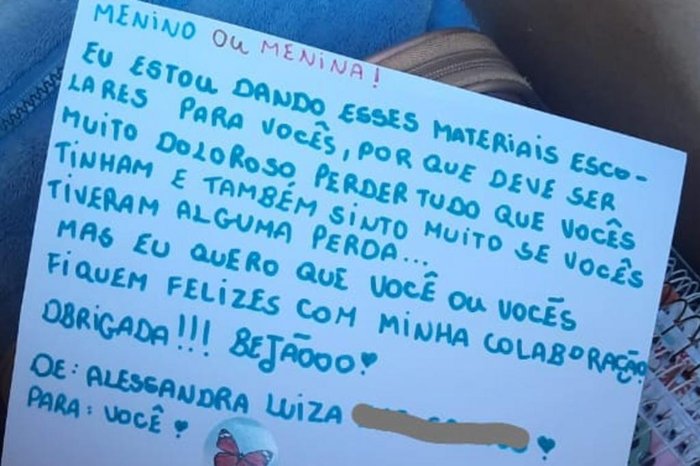 MENINO OU MENINA!
EU ESTOU DANDO ESSES MATERIAIS ESCO-
LARES PARA VOCÊS, POR QUE DEVE SER
MUITO DOLOROSO PERDER TUDO QUE VOCÊS
TINHAM E TAMBÉM SINTO MUITO SE VOCÊS
TIVERAM ALGUMA PERDA...
MAS EU QUERO QUE VOCÊ OU VOCÊS
FIQUEM FELIZES COM MINHA COLABORAÇÃO
OBRIGADA!!! BEJÃOOO!
DE: ALESSANDRA LUIZA
PARA: VOCÊ!